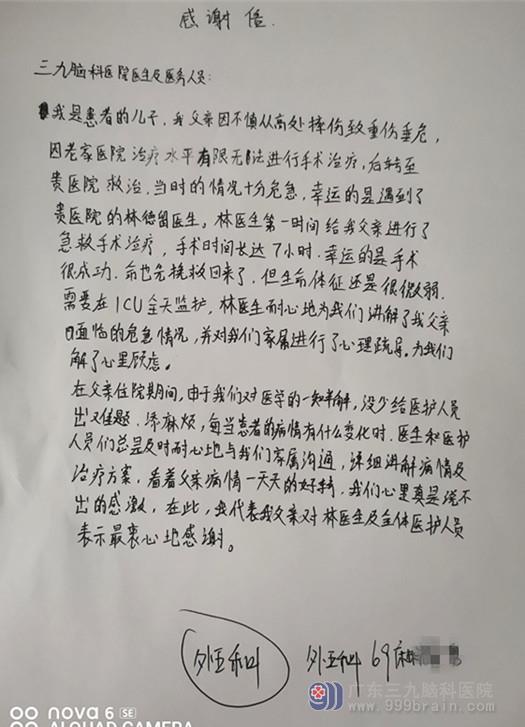 感谢信.
三九脑科医院医生及医务人员:
我是患者的儿子,我父亲因不慎从高处摔伤致重伤垂危,
因老家医院治疗水平有限无法进行手术治疗,后转至
贵医院救治,当时的情况十分危急,幸运的是遇到了
贵医院的林德留医生。林医生第一时间给我父亲进行了
急救手术治疗,手术时间长达7小时.幸运的是手术
很成功.命也先挽救回来了,但生命体征还是很微弱.
需要在ICU全天监护,林医生耐心地为我们讲解了我父亲
面临的危急情况,并对我们家属进行了心理疏导.为我们
解了心里顾虑。
在父亲住院期间,由于我们对医学的一知半解,没少给医护人员
出难题.添麻烦,每当患者的病情有什么变化时.医生和医护
人员们总是及时耐心地与我们家属沟通,详细讲解病情及
治疗方案.看着父亲病情一天天的好转,我们心里真是说不
出的感激,在此,我代表我父亲对林医生及全体医护人员
表示最衷心地感谢。
外五科 外五科 69床
广东三九脑科医院
www.999brain.com
nova 6 SE
AI QUAD CAMERA